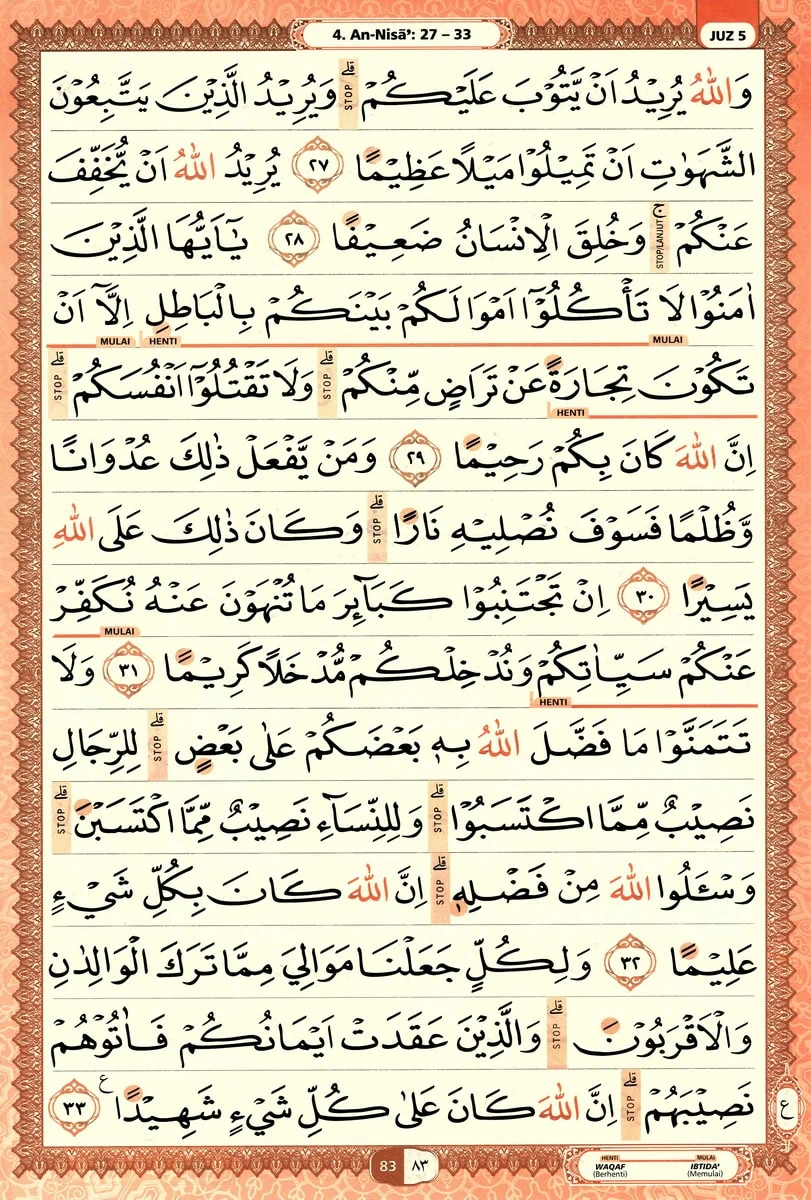 4. An-Nisā’: 27 – 33
JUZ 5
وَاللّٰهُ يُرِيْدُ اَنْ يَّتُوْبَ عَلَيْكُمْ ۗ STOP وَيُرِيْدُ الَّذِيْنَ يَتَّبِعُوْنَ
الشَّهَوٰتِ اَنْ تَمِيْلُوْا مَيْلًا عَظِيْمًا ٢٧ يُرِيْدُ اللّٰهُ اَنْ يُّخَفِّفَ
عَنْكُمْ ۚ STOP/LANJUT وَخُلِقَ الْاِنْسَانُ ضَعِيْفًا ٢٨ يٰٓاَيُّهَا الَّذِيْنَ
اٰمَنُوْا لَا تَأْكُلُوْٓا اَمْوَالَكُمْ بَيْنَكُمْ بِالْبَاطِلِ اِلَّآ اَنْ
MULAI HENTI MULAI
تَكُوْنَ تِجَارَةً عَنْ تَرَاضٍ مِّنْكُمْ ۗ STOP وَلَا تَقْتُلُوْٓا اَنْفُسَكُمْ ۗ STOP
HENTI
اِنَّ اللّٰهَ كَانَ بِكُمْ رَحِيْمًا ٢٩ وَمَنْ يَّفْعَلْ ذٰلِكَ عُدْوَانًا
وَّظُلْمًا فَسَوْفَ نُصْلِيْهِ نَارًا ۗ STOP وَكَانَ ذٰلِكَ عَلَى اللّٰهِ
يَسِيْرًا ٣٠ اِنْ تَجْتَنِبُوْا كَبَاۤىِٕرَ مَا تُنْهَوْنَ عَنْهُ نُكَفِّرْ
MULAI
عَنْكُمْ سَيِّاٰتِكُمْ وَنُدْخِلْكُمْ مُّدْخَلًا كَرِيْمًا ٣١ وَلَا
HENTI
تَتَمَنَّوْا مَا فَضَّلَ اللّٰهُ بِهٖ بَعْضَكُمْ عَلٰى بَعْضٍ ۗ STOP لِلرِّجَالِ
نَصِيْبٌ مِّمَّا اكْتَسَبُوْا ۗ STOP وَلِلنِّسَاۤءِ نَصِيْبٌ مِّمَّا اكْتَسَبْنَ ۗ STOP
وَسْـَٔلُوا اللّٰهَ مِنْ فَضْلِهٖ ۗ STOP اِنَّ اللّٰهَ كَانَ بِكُلِّ شَيْءٍ
عَلِيْمًا ٣٢ وَلِكُلٍّ جَعَلْنَا مَوَالِيَ مِمَّا تَرَكَ الْوَالِدٰنِ
وَالْاَقْرَبُوْنَ ۗ STOP وَالَّذِيْنَ عَقَدَتْ اَيْمَانُكُمْ فَاٰتُوْهُمْ
نَصِيْبَهُمْ ۗ STOP اِنَّ اللّٰهَ كَانَ عَلٰى كُلِّ شَيْءٍ شَهِيْدًا ع ٣٣
ع
83 ٨٣
HENTI MULAI
WAQAF IBTIDA’
(Berhenti) (Memulai)